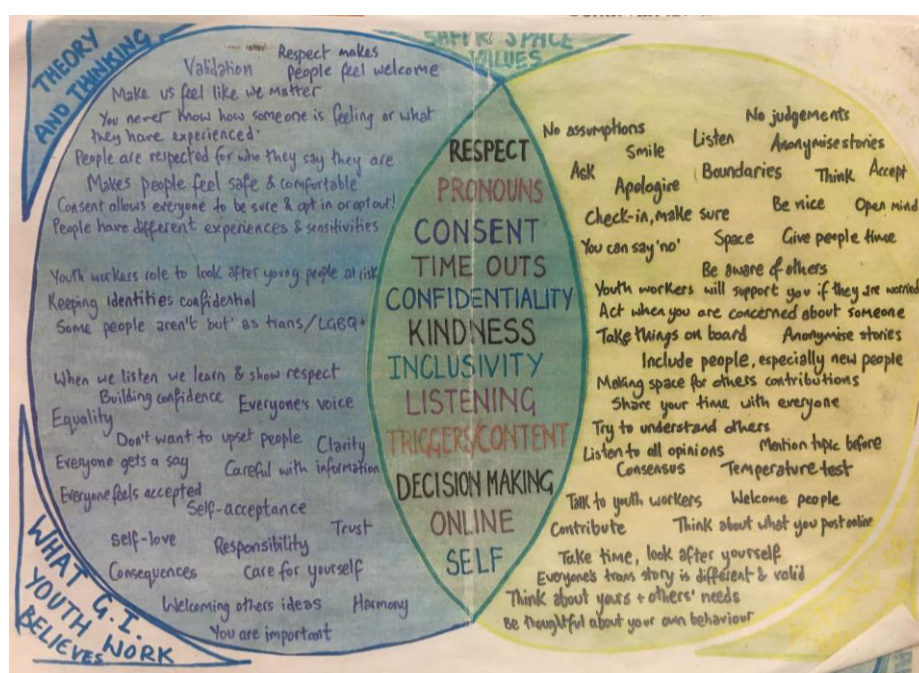 THEORY
AND THINKING
Respect makes
people feel welcome
Validation
Make us feel like we matter
You never know how someone is feeling or what
they have experienced.
People are respected for who they say they are
Makes people feel safe & comfortable
Consent allows everyone to be sure & opt in or opt out!
People have different experiences & sensitivities
Youth workers role to look after young people at risk
Keeping identities confidential
Some people aren't 'out' as trans/LGBQ+
When we listen we learn & show respect
Building confidence
Everyone's voice
Equality
Don't want to upset people
Clarity
Everyone gets a say
Careful with information
Everyone feels accepted
Self-acceptance
Trust
Self-love
Responsibility
Consequences
Care for yourself
Welcoming others ideas
Harmony
You are important
WHAT G.I.
YOUTH WORK
BELIEVES
SAFER SPACE
VALUES
RESPECT
PRONOUNS
CONSENT
TIME OUTS
CONFIDENTIALITY
KINDNESS
INCLUSIVITY
LISTENING
TRIGGERS/CONTENT
DECISION MAKING
ONLINE
SELF
No judgements
No assumptions
Smile
Listen
Anonymise stories
Ask
Apologise
Boundaries
Think
Accept
Check-in, make sure
Be nice
Open mind
You can say 'no'
Space
Give people time
Be aware of others
Youth workers will support you if they are worried
Act when you are concerned about someone
Take things on board
Anonymise stories
Include people, especially new people
Making space for others contributions
Share your time with everyone
Try to understand others
Listen to all opinions
Mention topic before
Consensus
Temperature test
Talk to youth workers
Welcome people
Contribute
Think about what you post online
Take time, look after yourself
Everyone's trans story is different & valid
Think about yours + others' needs
Be thoughtful about your own behaviour